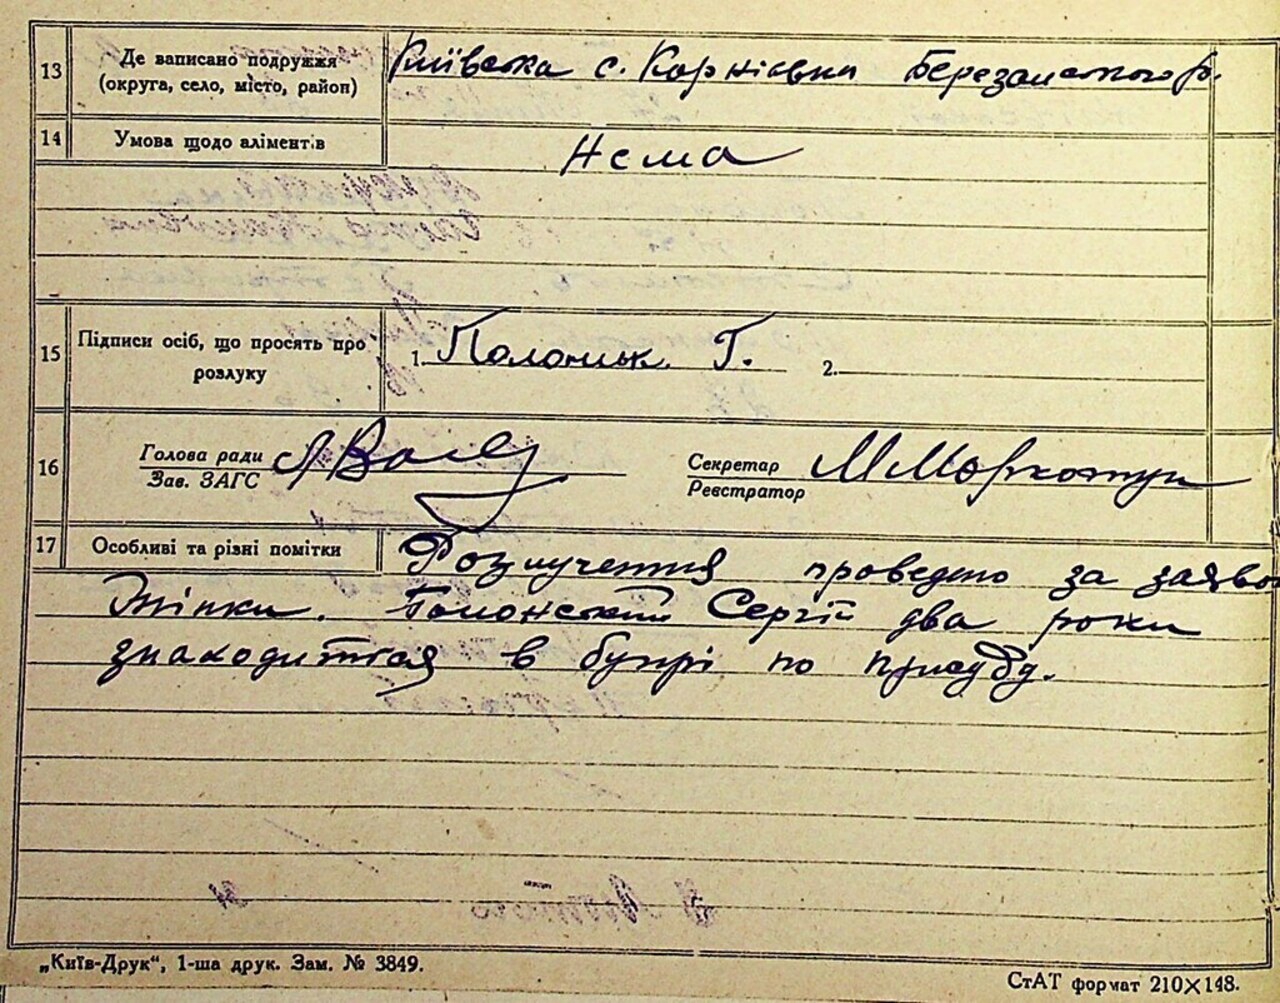 13 Де записано подружжя Київська с. Корніївки Березанського р.
(округа, село, місто, район)
14 Умова щодо аліментів Нема
15 Підписи осіб, що просять про 1. Г. 2.
розлуку
16 Голова ради Секретар
Зав. ЗАГС Реєстратор
17 Особливі та різні помітки Розлучення проведено за заяво
жінки. Сергій два роки
знаходиться в бупрі по присуду.
„Київ-Друк“, 1-ша друк. Зам. № 3849.
СтАТ формат 210×148.